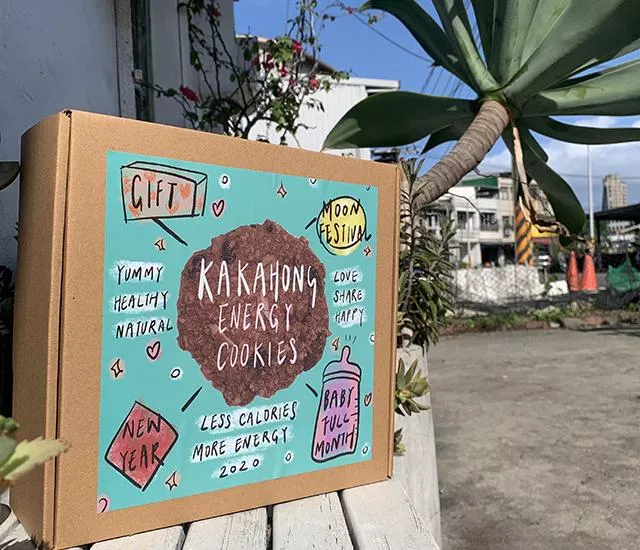 GIFT
MOON
FESTIVAL
KAKAHONG
ENERGY
COOKIES
YUMMY
HEALTHY
NATURAL
LOVE
SHARE
HAPPY
NEW
YEAR
LESS CALORIES
MORE ENERGY
2020
BABY
FULL
MONTH